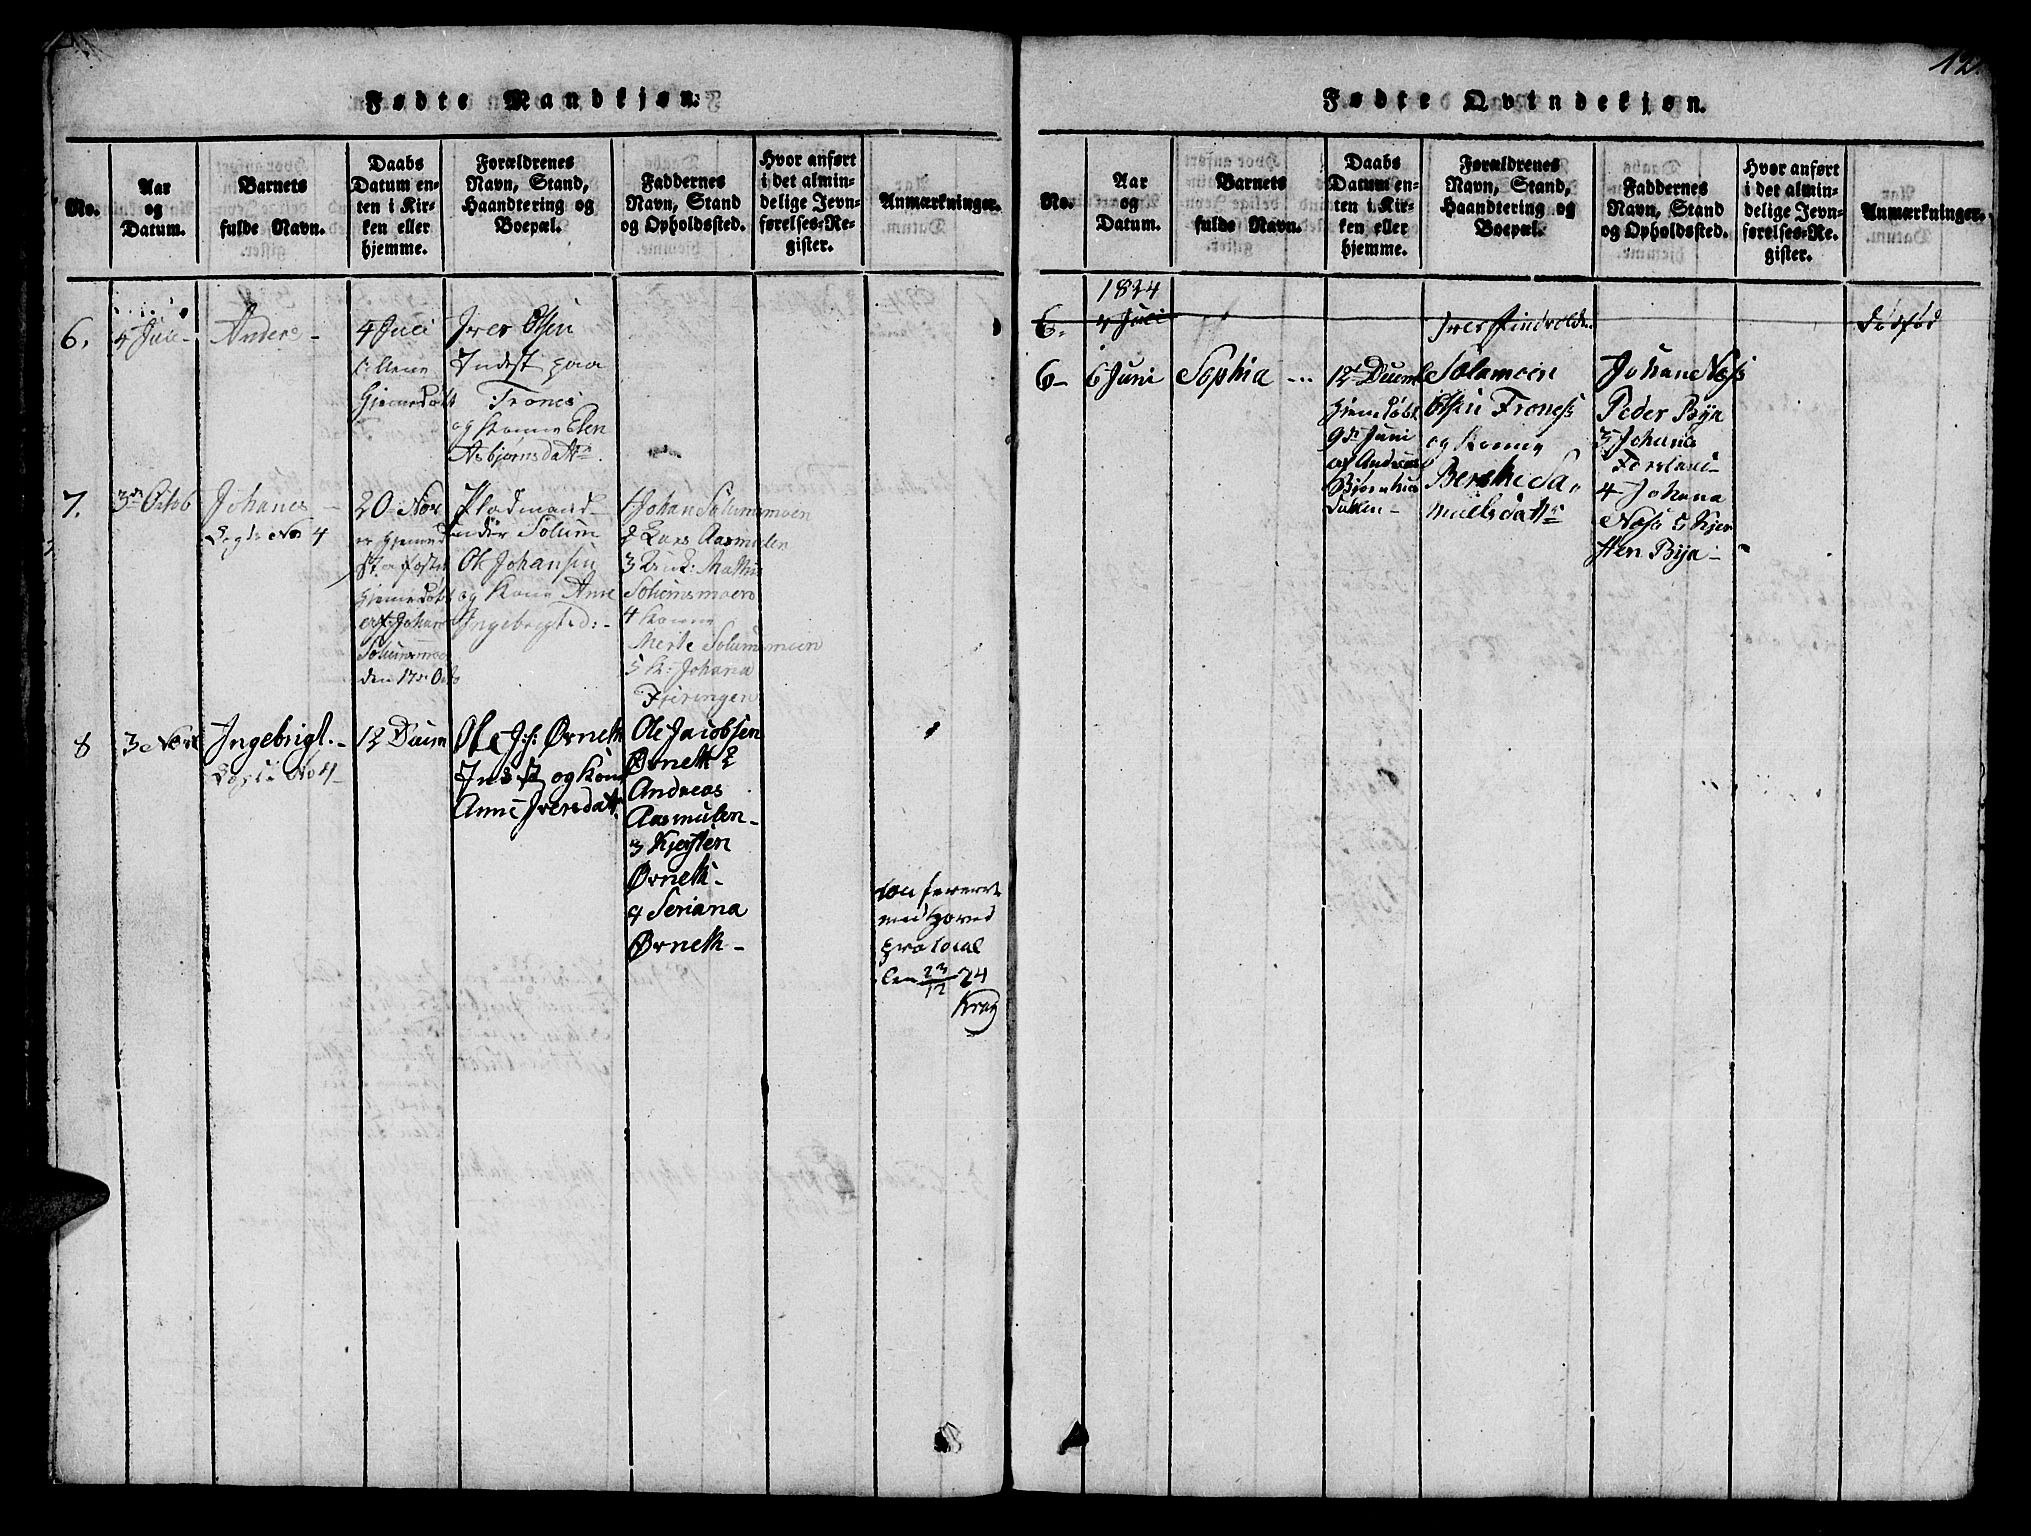 12.
Fødte Mandkjøn.
No.
Aar
og
Datum.
Barnets
fulde Navn.
Daabs
Datum en-
ten i Kir-
ken eller
hjemme.
Forældrenes
Navn, Stand,
Haandtering og
Boepæl.
Faddernes
Navn, Stand
og Opholdssted.
Hvor anført
i det almin-
delige Jevn-
førelses-Re-
gister.
Anmærkninger.
6.
4 Juli -
Andere -
4 Juli
Hjemedøbt
Iver Olsen
Inderst paa
Trones
og Kone Elen
Asbjørnsdattr.
7.
3de Octob
Johanes
No 4
20 Nov
Hjemedøbt
af Johan
Solumsmoe
den 17de Octo
Pladsmand
under Solum
Ole Johansen
og Kone Ane
Ingebrigtsd:
1 Johan Solumsmoen
2 Lars Aasmulen
3 Enk: Mathis
Solumsmoen
4 Kone
Merte Solumsmoen
5 K: Johana
Fjeringen
8
3 Nov
Ingebrigt -
No 4 -
12 Decem
Ole J: Ørneth
Indst og Kone
Anne Iversdattr
Ole Jacobsen
Ørneth 2
Andreas
Aasmulen -
3 Kjersten
Ørneth -
4 Seriana
Ørneth -
Confereret
med Hoved
Protocol
den 23/12 24
Krag
Fødte Qvindekjøn.
No.
Aar
og
Datum.
Barnets
fulde Navn.
Daabs
Datum en-
ten i Kir-
ken eller
hjemme.
Forældrenes
Navn, Stand,
Haandtering og
Boepæl.
Faddernes
Navn, Stand
og Opholdssted.
Hvor anført
i det almin-
delige Jevn-
førelses-Re-
gister.
Anmærkninger.
1824
6.
4 Juli
Dødfød
6 -
6 Juni
Sophia ...
12t Deceml
Hjemedøbt
9de Juni
af Andreas
Salamoen
Olsen Troness
og Kone
Berethe Sa,
muelsdattr
Johan Noss
Peder Bya
3 Johana
4 Johana
Noss 5 Kjer
sten Bya -